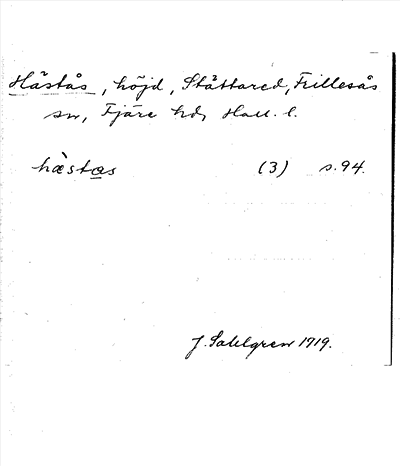 Hästås, höjd, Stättared, Frillesås
sn, Fjäre hd, Hall. l.
hæ̀stas (3) s. 94.
J. Sahlgren 1919.